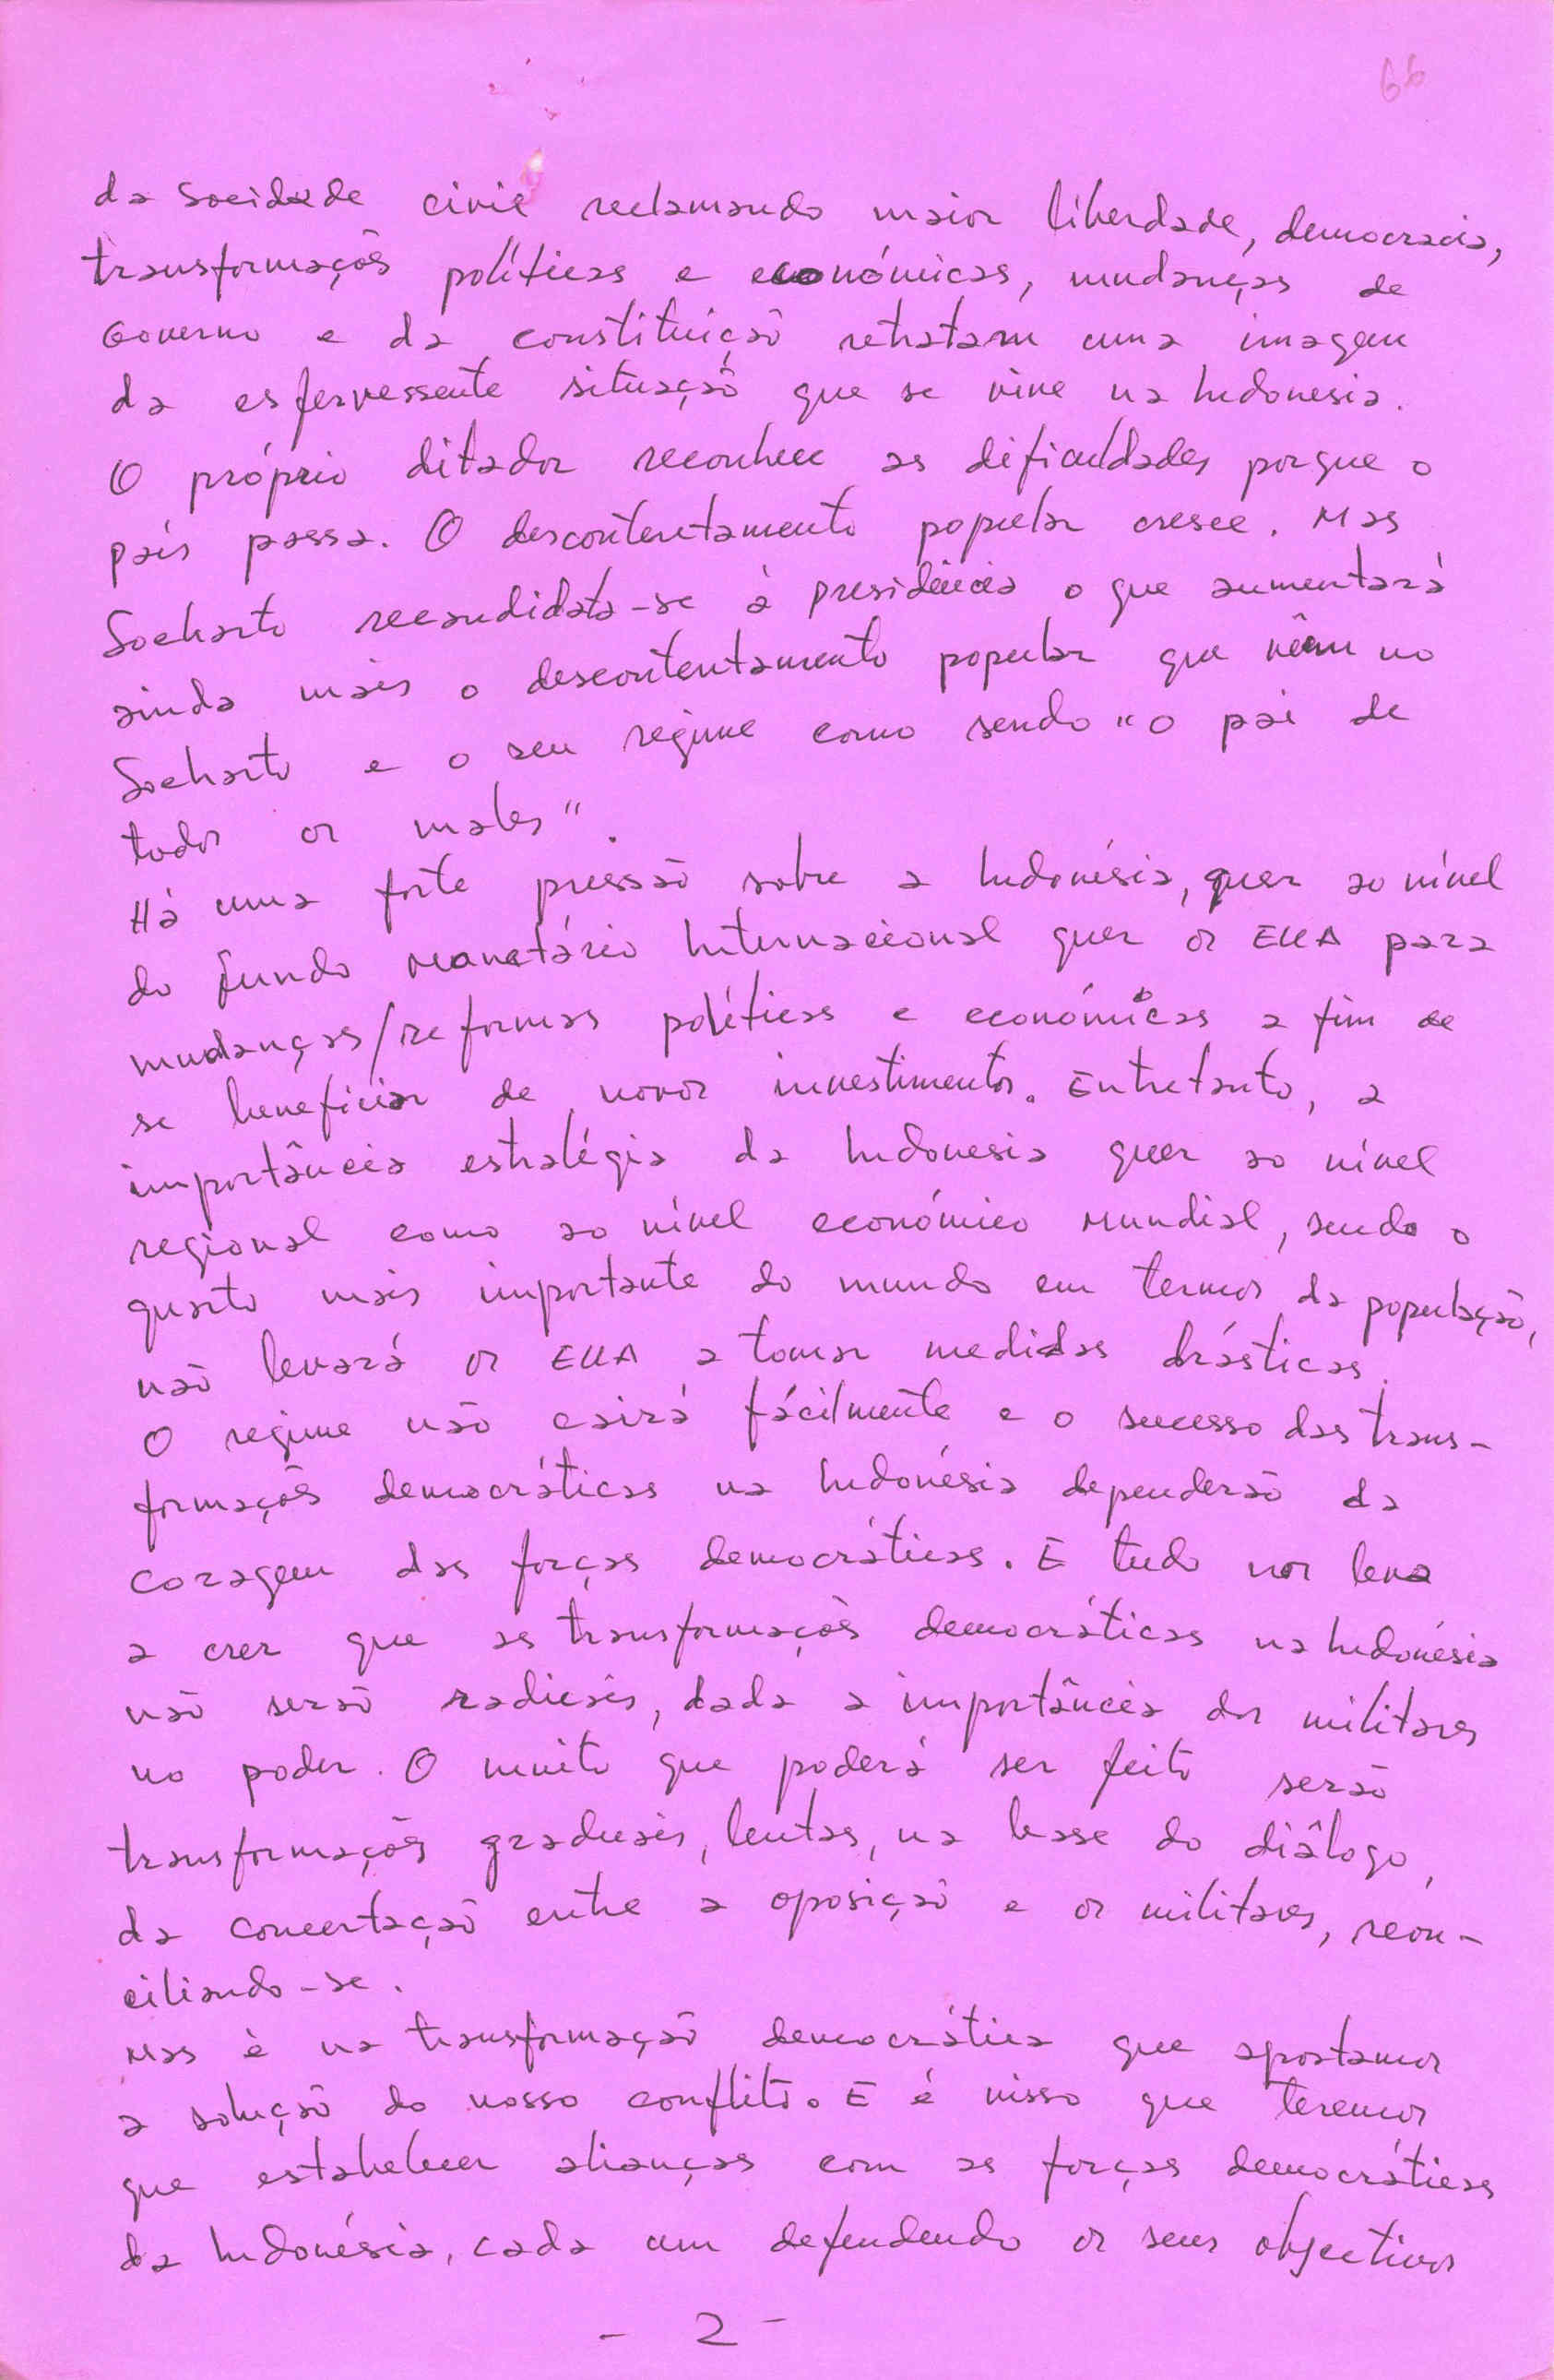 66
da Sociedade civil reclamando maior liberdade, democracia,
transformações políticas e económicas, mudanças de
Governo e da constituição retratam uma imagem
da esfervessente situação que se vive na Indonesia.
O próprio ditador reconhece as dificuldades porque o
país passa. O descontentamento popular cresce. Mas
Soeharto recandidata-se à presidência o que aumentará
ainda mais o descontentamento popular que vêem no
Soeharto e o seu regime como sendo "o pai de
todos os males".
Há uma forte pressão sobre a Indonésia, quer ao nível
do fundo Monetário Internacional quer os EUA para
mudanças/reformas políticas e económicas a fim de
se beneficiar de novos investimentos. Entretanto, a
importância estratégia da Indonesia quer ao nível
regional como ao nível económico Mundial, sendo o
quarto mais importante do mundo em termos da população,
não levará os EUA a tomar medidas drásticas.
O regime não cairá fácilmente e o sucesso das trans-
formações democráticas na Indonésia dependerão da
coragem das forças democráticas. E tudo nos leva
a crer que as transformações democráticas na Indonésia
não serão radicais, dada a importância dos militares
no poder. O muito que poderá ser feito serão
transformações graduais, lentas, na base do diâlogo,
da concertação entre a oposição e os militares, recon-
ciliando-se.
Mas é na transformação democrática que apostamos
a solução do nosso conflito. E é nisso que teremos
que estabelecer alianças com as forças democráticas
da Indonésia, cada um defendendo os seus objectivos
- 2 -